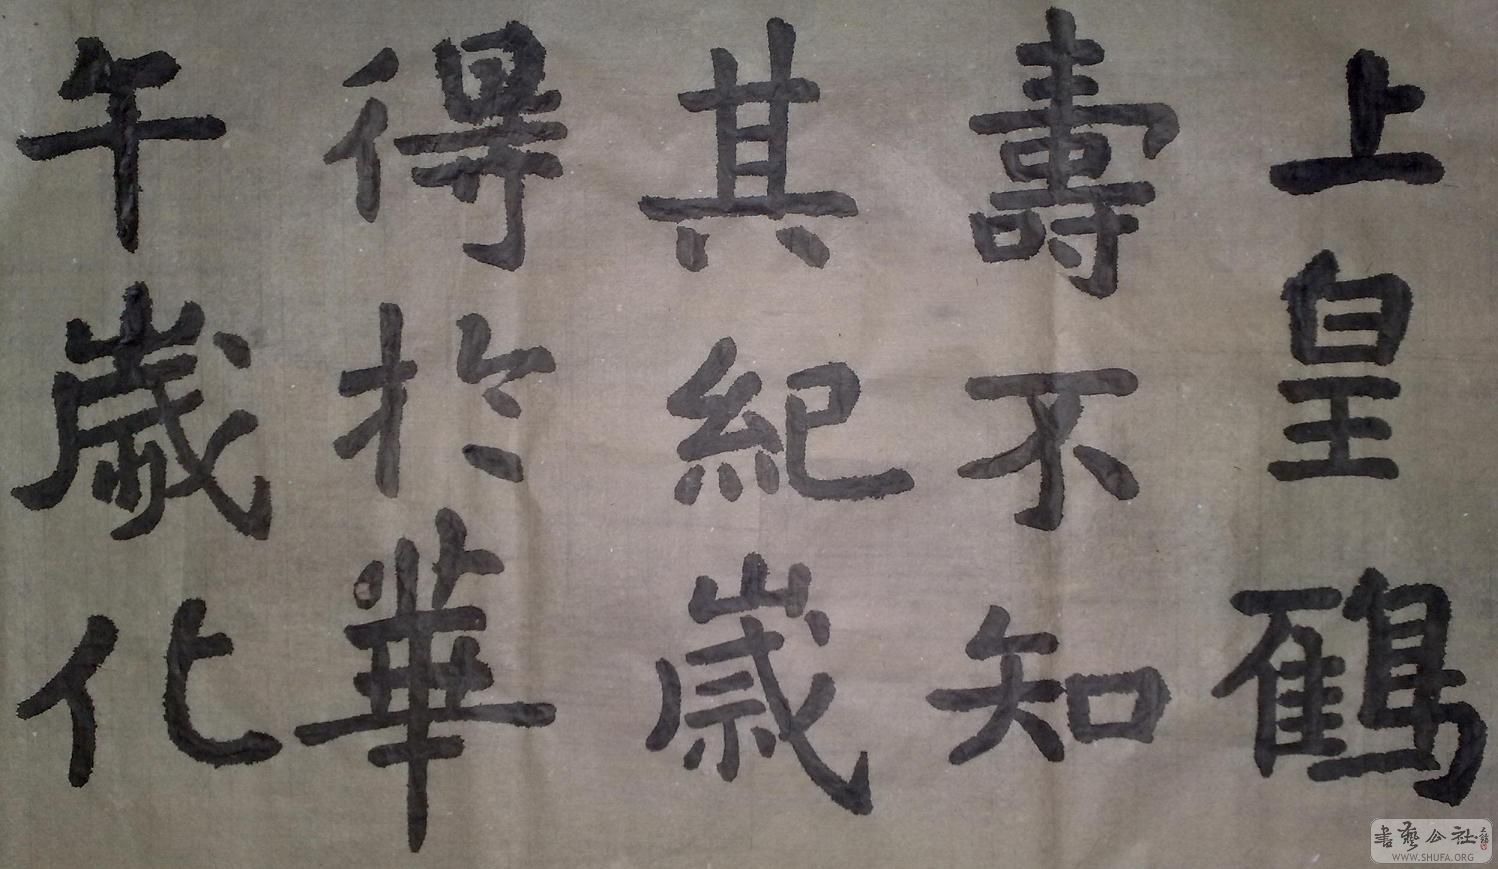 上皇鶴
壽不知
其紀歲
得於華
午歲化
書藝公社
WWW.SHUFA.ORG